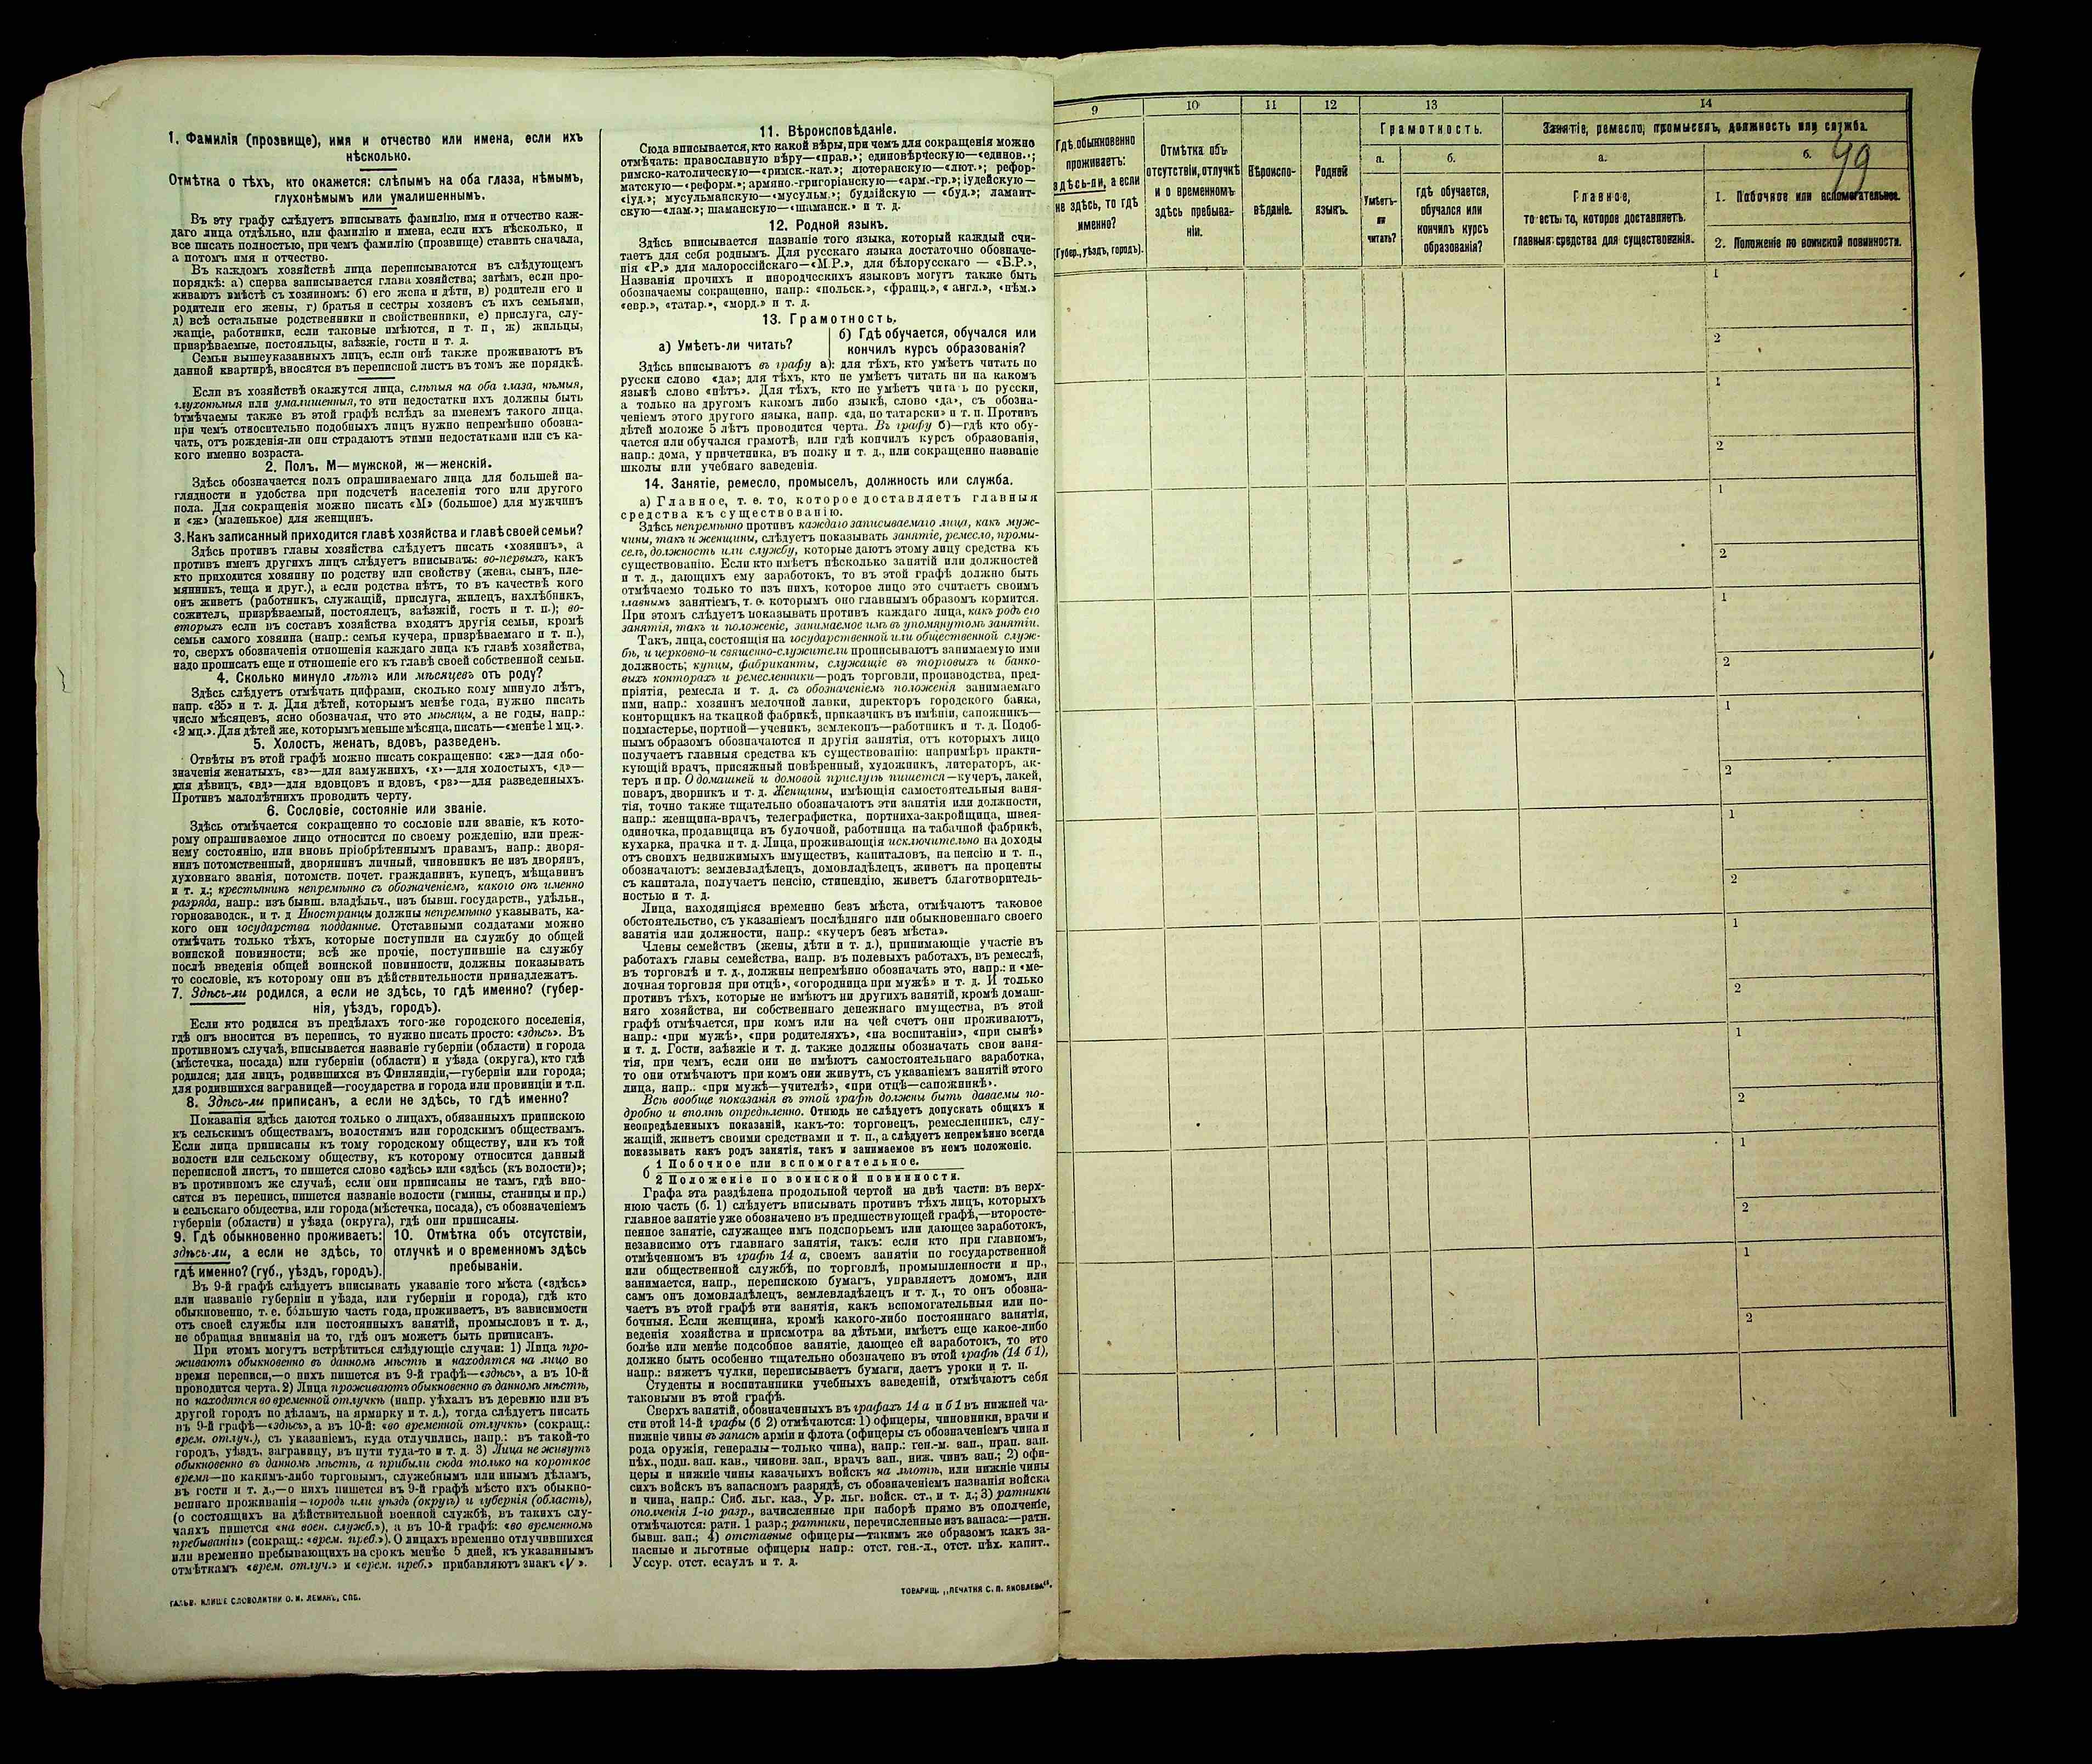 1. Фамилія (прозвище), имя и отчество или имена, если ихъ
нѣсколько.
Отмѣтка о тѣхъ, кто окажется: слѣпымъ на оба глаза, нѣмымъ,
глухонѣмымъ или умалишеннымъ.
Въ эту графу слѣдуетъ вписывать фамилію, имя и отчество каж-
даго лица отдѣльно, или фамилію и имена, если ихъ нѣсколько, и
все писать полностью, при чемъ фамилію (прозвище) ставить сначала,
а потомъ имя и отчество.
Въ каждомъ хозяйствѣ лица переписываются въ слѣдующемъ
порядкѣ: а) сперва записывается глава хозяйства; затѣмъ, если про-
живаютъ вмѣстѣ съ хозяиномъ: б) его жена и дѣти, в) родители его и
родители его жены, г) братья и сестры хозяевъ съ ихъ семьями,
д) всѣ остальные родственники и свойственники, е) прислуга, слу-
жащіе, работники, если таковые имѣются, и т. п, ж) жильцы,
призрѣваемые, постояльцы, заѣзжіе, гости и т. д.
Семьи вышеуказанныхъ лицъ, если онѣ также проживаютъ въ
данной квартирѣ, вносятся въ переписной листъ въ томъ же порядкѣ.
Если въ хозяйствѣ окажутся лица, слѣпыя на оба глаза, нѣмыя,
глухонѣмыя или умалишенныя, то эти недостатки ихъ должны быть
отмѣчаемы также въ этой графѣ вслѣдъ за именемъ такого лица.
при чемъ относительно подобныхъ лицъ нужно непремѣнно обозна-
чать, отъ рожденія-ли они страдаютъ этими недостатками или съ ка-
кого именно возраста.
2. Полъ. М—мужской, ж—женскій.
Здѣсь обозначается полъ опрашиваемаго лица для большей на-
глядности и удобства при подсчетѣ населенія того или другого
пола. Для сокращенія можно писать «М» (большое) для мужчинъ
и «ж» (маленькое) для женщинъ.
3. Какъ записанный приходится главѣ хозяйства и главѣ своей семьи?
Здѣсь противъ главы хозяйства слѣдуетъ писать «хозяинъ», а
противъ именъ другихъ лицъ слѣдуетъ вписывать: во-первыхъ, какъ
кто приходится хозяину по родству или свойству (жена, сынъ, пле-
мянникъ, теща и друг.), а если родства нѣтъ, то въ качествѣ кого
онъ живетъ (работникъ, служащій, прислуга, жилецъ, нахлѣбникъ,
сожитель, призрѣваемый, постоялецъ, заѣзжій, гость и т. п.); во-
вторыхъ если въ составъ хозяйства входятъ другія семьи, кромѣ
семьи самого хозяина (напр.: семья кучера, призрѣваемаго и т. п.),
то, сверхъ обозначенія отношенія каждаго лица къ главѣ хозяйства,
надо прописать еще и отношеніе его къ главѣ своей собственной семьи.
4. Сколько минуло лѣтъ или мѣсяцевъ отъ роду?
Здѣсь слѣдуетъ отмѣчать цифрами, сколько кому минуло лѣтъ,
напр. «35» и т. д. Для дѣтей, которымъ менѣе года, нужно писать
число мѣсяцевъ, ясно обозначая, что это мѣсяцы, а не годы, напр.:
«2 мц.». Для дѣтей же, которымъ меньше мѣсяца, писать—«менѣе 1 мц.».
5. Холостъ, женатъ, вдовъ, разведенъ.
Отвѣты въ этой графѣ можно писать сокращенно: «ж»—для обо-
значенія женатыхъ, «з»—для замужнихъ, «х»—для холостыхъ, «д»—
для дѣвицъ, «вд»—для вдовцовъ и вдовъ, «рв»—для разведенныхъ.
Противъ малолѣтнихъ проводить черту.
6. Сословіе, состояніе или званіе.
Здѣсь отмѣчается сокращенно то сословіе или званіе, къ кото-
рому опрашиваемое лицо относится по своему рожденію, или преж-
нему состоянію, или вновь пріобрѣтеннымъ правамъ, напр.: дворя-
нинъ потомственный, дворянинъ личный, чиновникъ не изъ дворянъ,
духовнаго званія, потомств. почет. гражданинъ, купецъ, мѣщанинъ
и т. д.; крестьянинъ непремѣнно съ обозначеніемъ, какого онъ именно
разряда, напр.: изъ бывш. владѣльч., изъ бывш. государств., удѣльн.,
горнозаводск., и т. д Иностранцы должны непремѣнно указывать, ка-
кого они государства подданные. Отставными солдатами можно
отмѣчать только тѣхъ, которые поступили на службу до общей
воинской повинности; всѣ же прочіе, поступившіе на службу
послѣ введенія общей воинской повинности, должны показывать
то сословіе, къ которому они въ дѣйствительности принадлежатъ.
7. Здѣсь-ли родился, а если не здѣсь, то гдѣ именно? (губер-
нія, уѣздъ, городъ).
Если кто родился въ предѣлахъ того-же городского поселенія,
гдѣ онъ вносится въ перепись, то нужно писать просто: «здѣсь». Въ
противномъ случаѣ, вписывается названіе губерніи (области) и города
(мѣстечка, посада) или губерніи (области) и уѣзда (округа), кто гдѣ
родился; для лицъ, родившихся въ Финляндіи,—губерніи или города;
для родившихся заграницей—государства и города или провинціи и т.п.
8. Здѣсь-ли приписанъ, а если не здѣсь, то гдѣ именно?
Показанія здѣсь даются только о лицахъ, обязанныхъ припискою
къ сельскимъ обществамъ, волостямъ или городскимъ обществамъ.
Если лица приписаны къ тому городскому обществу, или къ той
волости или сельскому обществу, къ которому относится данный
переписной листъ, то пишется слово «здѣсь» или «здѣсь (къ волости)»;
въ противномъ же случаѣ, если они приписаны не тамъ, гдѣ вно-
сятся въ перепись, пишется названіе волости (гмины, станицы и пр.)
и сельскаго общества, или города (мѣстечка, посада), съ обозначеніемъ
губерніи (области) и уѣзда (округа), гдѣ они приписаны.
9. Гдѣ обыкновенно проживаетъ:
здѣсь-ли, а если не здѣсь, то
гдѣ именно? (губ., уѣздъ, городъ).
10. Отмѣтка объ отсутствіи,
отлучкѣ и о временномъ здѣсь
пребываніи.
Въ 9-й графѣ слѣдуетъ вписывать указаніе того мѣста («здѣсь»
или названіе губерніи и уѣзда, или губерніи и города), гдѣ кто
обыкновенно, т. е. бо́льшую часть года, проживаетъ, въ зависимости
отъ своей службы или постоянныхъ занятій, промысловъ и т. д.,
не обращая вниманія на то, гдѣ онъ можетъ быть приписанъ.
При этомъ могутъ встрѣтиться слѣдующіе случаи: 1) Лица про-
живаютъ обыкновенно въ данномъ мѣстѣ и находятся на лицо во
время переписи,—о нихъ пишется въ 9-й графѣ—«здѣсь», а въ 10-й
проводится черта. 2) Лица проживаютъ обыкновенно въ данномъ мѣстѣ,
но находятся во временной отлучкѣ (напр. уѣхалъ въ деревню или въ
другой городъ по дѣламъ, на ярмарку и т. д.), тогда слѣдуетъ писать
въ 9-й графѣ—«здѣсь», а въ 10-й: «во временной отлучкѣ» (сокращ.:
врем. отлуч.), съ указаніемъ, куда отлучились, напр.: въ такой-то
городъ, уѣздъ, заграницу, въ пути туда-то и т. д. 3) Лица не живутъ
обыкновенно въ данномъ мѣстѣ, а прибыли сюда только на короткое
время—по какимъ-либо торговымъ, служебнымъ или инымъ дѣламъ,
въ гости и т. д.,—о нихъ пишется въ 9-й графѣ мѣсто ихъ обыкно-
веннаго проживанія—городъ или уѣздъ (округъ) и губернія (область),
(о состоящихъ на дѣйствительной военной службѣ, въ такихъ слу-
чаяхъ пишется «на воен. служб.»), а въ 10-й графѣ: «во временномъ
пребываніи» (сокращ.: «врем. преб.»). О лицахъ временно отлучившихся
или временно пребывающихъ на срокъ менѣе 5 дней, къ указаннымъ
отмѣткамъ «врем. отлуч.» и «врем. преб.» прибавляютъ знакъ «V».
ГАЛЬВ. КЛИШЕ СЛОВОЛИТНИ О. И. ЛЕМАНЪ, СПБ.
11. Вѣроисповѣданіе.
Сюда вписывается, кто какой вѣры, при чемъ для сокращенія можно
отмѣчать: православную вѣру—«прав.»; единовѣрческую—«единов.»;
римско-католическую—«римск.-кат.»; лютеранскую—«лют.»; рефор-
матскую—«реформ.»; армяно.-григоріанскую—«арм.-гр.»; іудейскую—
«іуд.»; мусульманскую—«мусульм.»; буддійскую — «буд.»; ламаит-
скую—«лам.»; шаманскую—«шаманск.» и т. д.
12. Родной языкъ.
Здѣсь вписывается названіе того языка, который каждый счи-
таетъ для себя роднымъ. Для русскаго языка достаточно обозначе-
нія «Р.» для малороссійскаго—«М.Р.», для бѣлорусскаго — «Б.Р.»,
Названія прочихъ и инородческихъ языковъ могутъ также быть
обозначаемы сокращенно, напр.: «польск.», «франц.», «англ.», «нѣм.»
«евр.», «татар.», «морд.» и т. д.
13. Грамотность.
а) Умѣетъ-ли читать?
б) Гдѣ обучается, обучался или
кончилъ курсъ образованія?
Здѣсь вписываютъ въ графу а): для тѣхъ, кто умѣетъ читать по
русски слово «да»; для тѣхъ, кто не умѣетъ читать ни на какомъ
языкѣ слово «нѣтъ». Для тѣхъ, кто не умѣетъ читать по русски,
а только на другомъ какомъ либо языкѣ, слово «да», съ обозна-
ченіемъ этого другого языка, напр. «да, по татарски» и т. п. Противъ
дѣтей моложе 5 лѣтъ проводится черта. Въ графу б)—гдѣ кто обу-
чается или обучался грамотѣ, или гдѣ кончилъ курсъ образованія,
напр.: дома, у причетника, въ полку и т. д., или сокращенно названіе
школы или учебнаго заведенія.
14. Занятіе, ремесло, промыселъ, должность или служба.
а) Главное, т. е. то, которое доставляетъ главныя
средства къ существованію.
Здѣсь непремѣнно противъ каждаго записываемаго лица, какъ муж-
чины, такъ и женщины, слѣдуетъ показывать занятіе, ремесло, промы-
селъ, должность или службу, которые даютъ этому лицу средства къ
существованію. Если кто имѣетъ нѣсколько занятій или должностей
и т. д., дающихъ ему заработокъ, то въ этой графѣ должно быть
отмѣчаемо только то изъ нихъ, которое лицо это считаетъ своимъ
главнымъ занятіемъ, т. е. которымъ оно главнымъ образомъ кормится.
При этомъ слѣдуетъ показывать противъ каждаго лица, какъ родъ его
занятія, такъ и положеніе, занимаемое имъ въ упомянутомъ занятіи.
Такъ, лица, состоящія на государственной или общественной служ-
бѣ, и церковно-и священно-служители прописываютъ занимаемую ими
должность; купцы, фабриканты, служащіе въ торговыхъ и банко-
выхъ конторахъ и ремесленники—родъ торговли, производства, пред-
пріятія, ремесла и т. д. съ обозначеніемъ положенія занимаемаго
ими, напр.: хозяинъ мелочной лавки, директоръ городского банка,
конторщикъ на ткацкой фабрикѣ, приказчикъ въ имѣніи, сапожникъ—
подмастерье, портной—ученикъ, землекопъ—работникъ и т. д. Подоб-
нымъ образомъ обозначаются и другія занятія, отъ которыхъ лицо
получаетъ главныя средства къ существованію: напримѣръ практи-
кующій врачъ, присяжный повѣренный, художникъ, литераторъ, ак-
теръ и пр. О домашней и домовой прислугѣ пишется—кучеръ, лакей,
поваръ, дворникъ и т. д. Женщины, имѣющія самостоятельныя заня-
тія, точно также тщательно обозначаютъ эти занятія или должности,
напр.: женщина-врачъ, телеграфистка, портниха-закройщица, швея-
одиночка, продавщица въ булочной, работница на табачной фабрикѣ,
кухарка, прачка и т. д. Лица, проживающія исключительно на доходы
отъ своихъ недвижимыхъ имуществъ, капиталовъ, на пенсію и т. п.,
обозначаютъ: землевладѣлецъ, домовладѣлецъ, живетъ на проценты
съ капитала, получаетъ пенсію, стипендію, живетъ благотворитель-
ностью и т. д.
Лица, находящіяся временно безъ мѣста, отмѣчаютъ таковое
обстоятельство, съ указаніемъ послѣдняго или обыкновеннаго своего
занятія или должности, напр.: «кучеръ безъ мѣста».
Члены семействъ (жены, дѣти и т. д.), принимающіе участіе въ
работахъ главы семейства, напр. въ полевыхъ работахъ, въ ремеслѣ,
въ торговлѣ и т. д., должны непремѣнно обозначать это, напр.: и «ме-
лочная торговля при отцѣ», «огородница при мужѣ» и т. д. И только
противъ тѣхъ, которые не имѣютъ ни другихъ занятій, кромѣ домаш-
няго хозяйства, ни собственнаго денежнаго имущества, въ этой
графѣ отмѣчается, при комъ или на чей счетъ они проживаютъ,
напр.: «при мужѣ», «при родителяхъ», «на воспитаніи», «при сынѣ»
и т. д. Гости, заѣзжіе и т. д. также должны обозначать свои заня-
тія, при чемъ, если они не имѣютъ самостоятельнаго заработка,
то они отмѣчаютъ при комъ они живутъ, съ указаніемъ занятій этого
лица, напр.. «при мужѣ—учителѣ», «при отцѣ—сапожникѣ».
Всѣ вообще показанія въ этой графѣ должны быть даваемы по-
дробно и вполнѣ опредѣленно. Отнюдь не слѣдуетъ допускать общихъ и
неопредѣленныхъ показаній, какъ-то: торговецъ, ремесленникъ, слу-
жащій, живетъ своими средствами и т. п., а слѣдуетъ непремѣнно всегда
показывать какъ родъ занятія, такъ и занимаемое въ немъ положеніе.
б 1 Побочное или вспомогательное.
2 Положеніе по воинской повинности.
Графа эта раздѣлена продольной чертой на двѣ части: въ верх-
нюю часть (б. 1) слѣдуетъ вписывать противъ тѣхъ лицъ, которыхъ
главное занятіе уже обозначено въ предшествующей графѣ,—второсте-
пенное занятіе, служащее имъ подспорьемъ или дающее заработокъ,
независимо отъ главнаго занятія, такъ: если кто при главномъ,
отмѣченномъ въ графѣ 14 а, своемъ занятіи по государственной
или общественной службѣ, по торговлѣ, промышленности и пр.,
занимается, напр., перепискою бумагъ, управляетъ домомъ, или
самъ онъ домовладѣлецъ, землевладѣлецъ и т. д., то онъ обозна-
чаетъ въ этой графѣ эти занятія, какъ вспомогательныя или по-
бочныя. Если женщина, кромѣ какого-либо постояннаго занятія,
веденія хозяйства и присмотра за дѣтьми, имѣетъ еще какое-либо
болѣе или менѣе подсобное занятіе, дающее ей заработокъ, то это
должно быть особенно тщательно обозначено въ этой графѣ (14 б 1),
напр.: вяжетъ чулки, переписываетъ бумаги, даетъ уроки и т. п.
Студенты и воспитанники учебныхъ заведеній, отмѣчаютъ себя
таковыми въ этой графѣ.
Сверхъ занятій, обозначенныхъ въ графахъ 14 а и б 1 въ нижней ча-
сти этой 14-й графы (б 2) отмѣчаются: 1) офицеры, чиновники, врачи и
нижніе чины въ запасѣ арміи и флота (офицеры съ обозначеніемъ чина и
рода оружія, генералы—только чина), напр.: ген.-м. зап., прап. зап.
пѣх., подп. зап. кав., чиновн. зап., врачъ зап., ниж. чинъ зап.; 2) офи-
церы и нижніе чины казачьихъ войскъ на льготѣ, или нижніе чины
сихъ войскъ въ запасномъ разрядѣ, съ обозначеніемъ названія войска
и чина, напр.: Сиб. льг. каз., Ур. льг. войск. ст., и т. д.; 3) ратники
ополченія 1-го разр., зачисленные при наборѣ прямо въ ополченіе,
отмѣчаются: ратн. 1 разр.; ратники, перечисленные изъ запаса:—ратн.
бывш. зап.; 4) отставные офицеры—такимъ же образомъ какъ за-
пасные и льготные офицеры напр.: отст. ген.-л., отст. пѣх. капит..
Уссур. отст. есаулъ и т. д.
ТОВАРИЩ. „ПЕЧАТНЯ С. П. ЯКОВЛЕВА“.
9
10
11
12
13
14
Гдѣ обыкновенно
проживаетъ:
здѣсь-ли, а если
не здѣсь, то гдѣ
именно?
(Губер., уѣздъ, городъ).
Отмѣтка объ
отсутствіи, отлучкѣ
и о временномъ
здѣсь пребыва-
ніи.
Вѣроиспо-
вѣданіе.
Родной
языкъ.
Грамотность.
а.
Умѣетъ-
ли
читать?
б.
Гдѣ обучается,
обучался или
кончилъ курсъ
образованія?
Занятіе, ремесло, промыселъ, должность или служба.
а.
Главное,
то есть: то, которое доставляетъ
главныя средства для существованія.
б.
49
1. Побочное или вспомогательное.
2. Положеніе по воинской повинности.
1
2
1
2
1
2
1
2
1
2
1
2
1
2
1
2
1
2
1
2